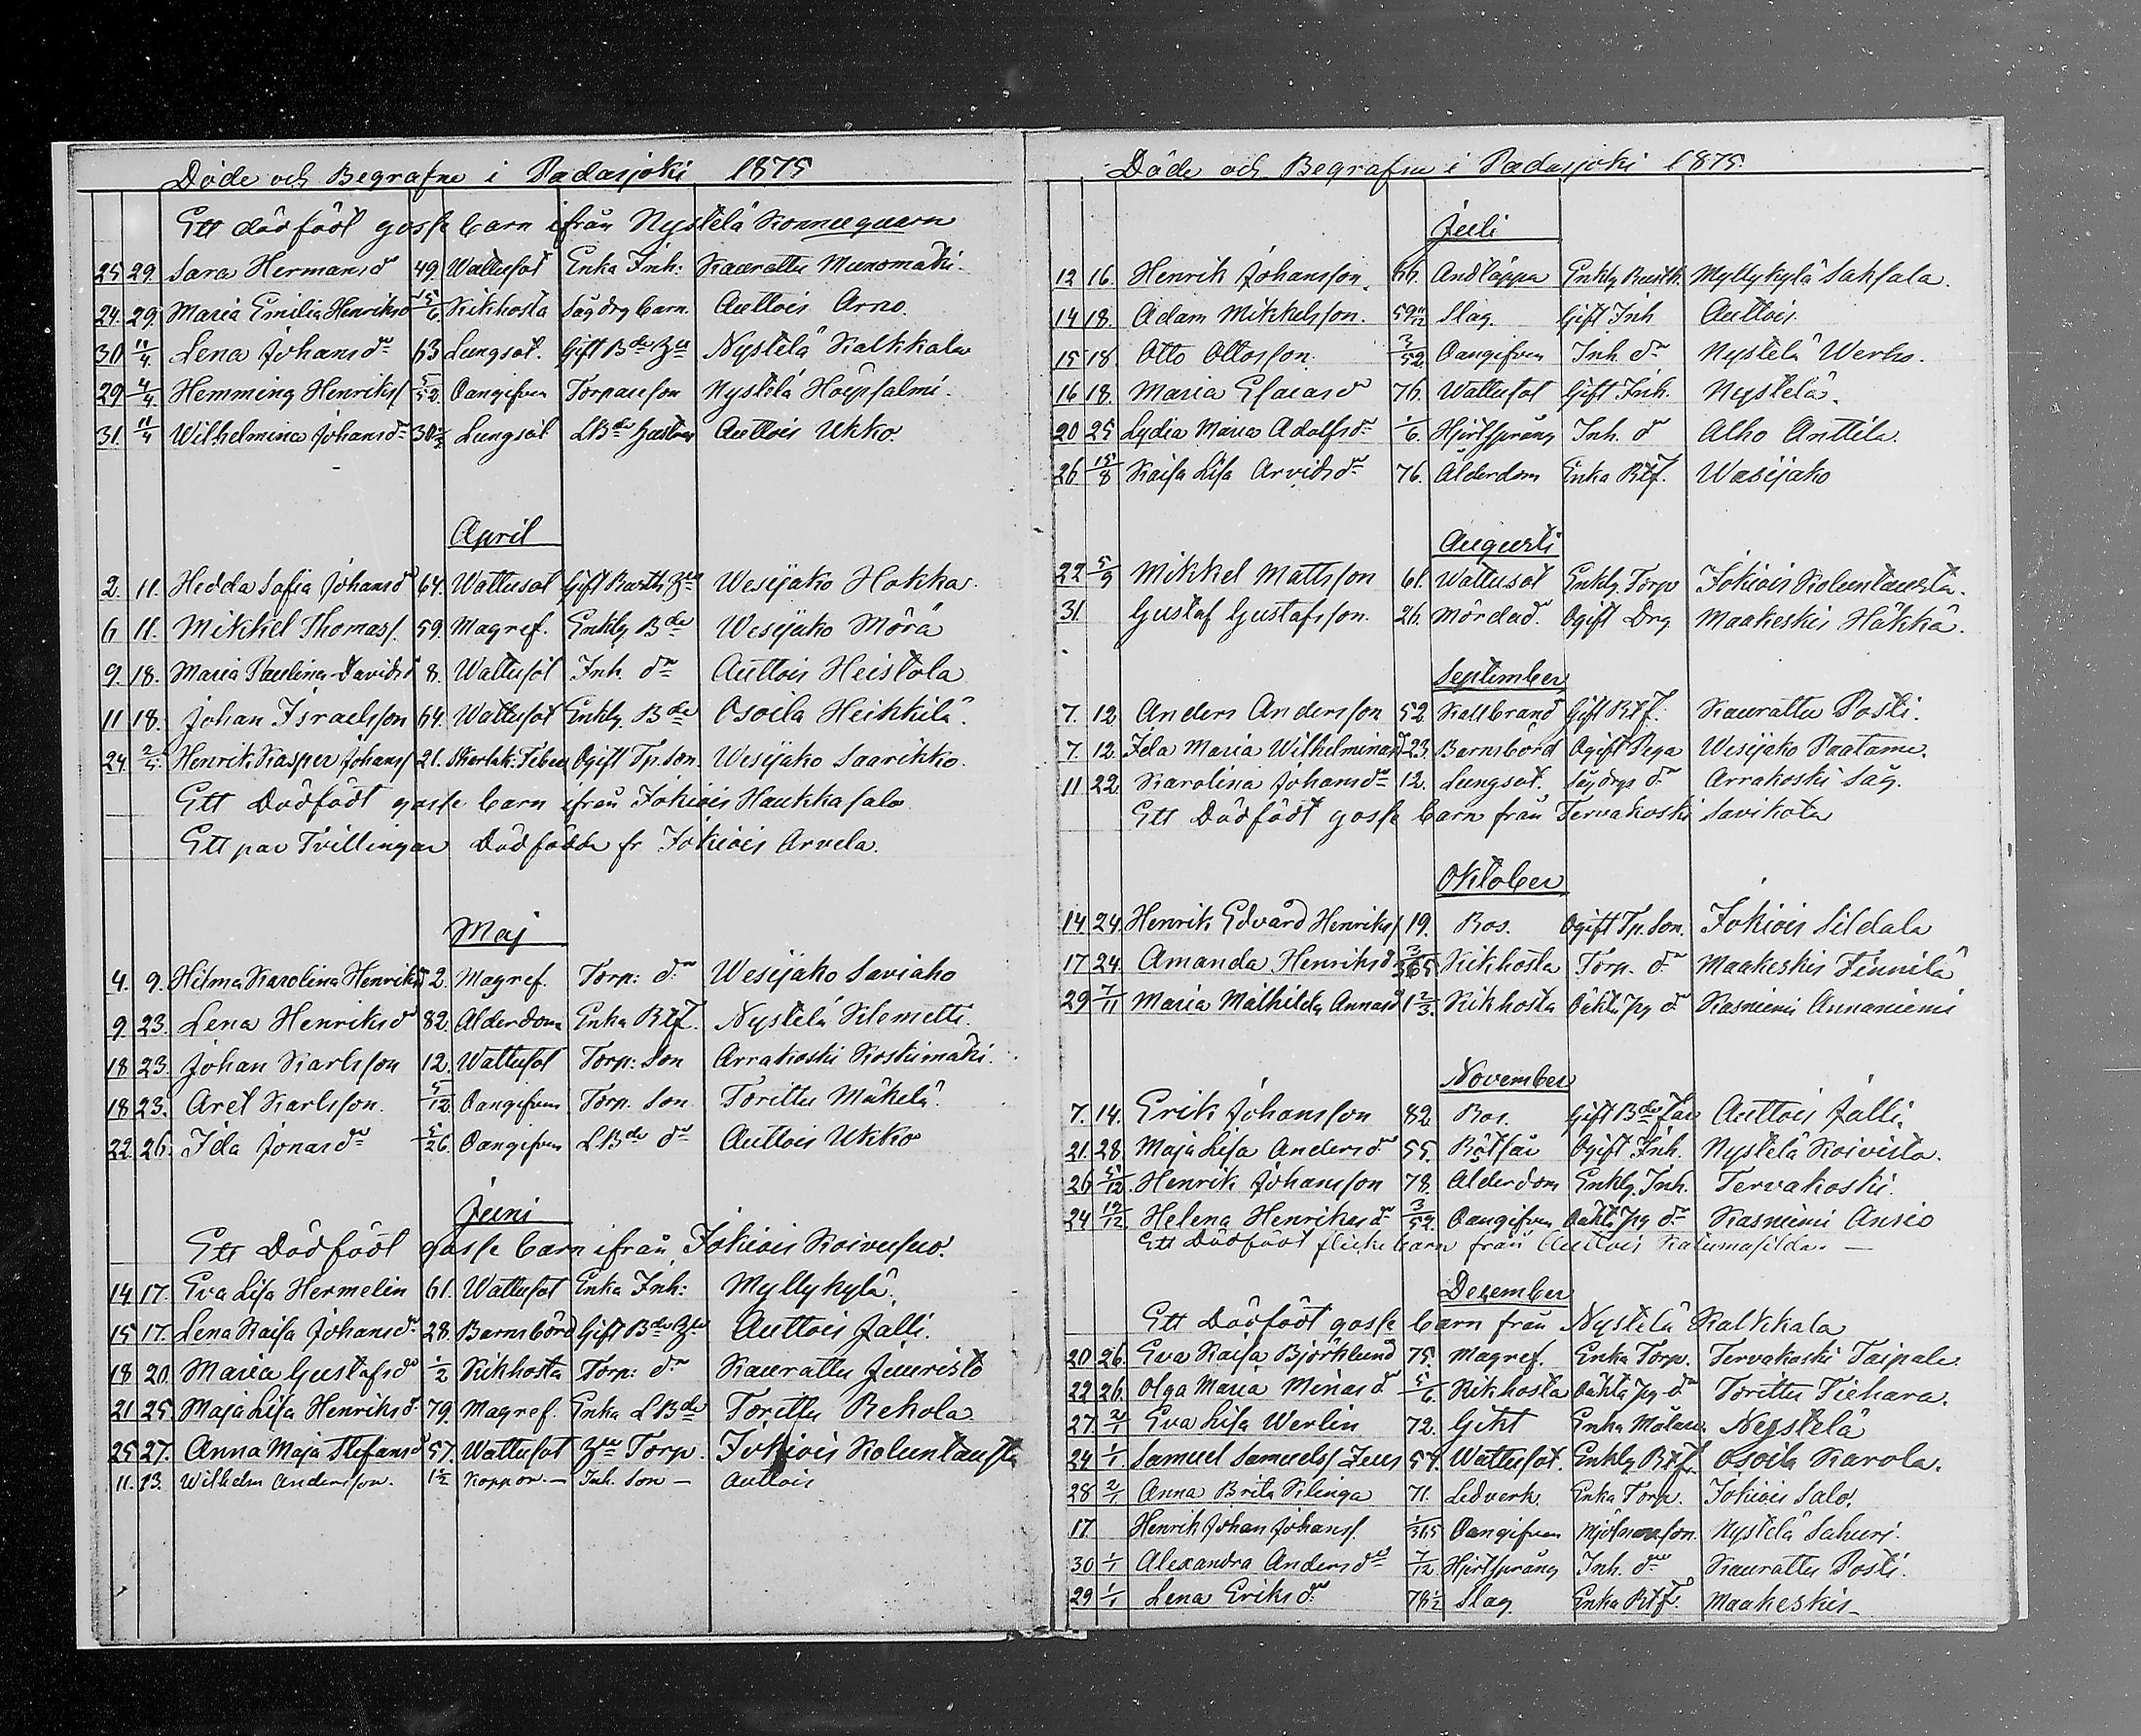 Döde och Begrafne i Padasjoki 1875
Ett dödfödt gosse barn ifrån Nystelä Konnuquarn
25 29. Sara Hermansd 49. Wattusot Enka Inh: Kaurattu Munomäki.
24. 29. Maria Emilia Henriksd 5/6. Kikhosta Sågdrg barn. Auttois Arno.
30 11/4 Lena Johansdr 63 Lungsot. Gift Bde Hu Nystelä Kalkkala
29 4/4. Hemming Henrikss 5/52. Oangifven Torpareson Nystelä Hoipsalmi.
31. 11/4 Wilhelmina Johansdr 30 1/2 Lungsot LBde Hustru Auttois Ukko.
April
2. 11. Hedda Sofia Johansd 64. Wattusot Gift Rusth. Hu Wesijako Hokka.
6 11. Mikkel Thomass. 59. Magref. Enklg Bde Wesijako Mörä
9. 18. Maria Paulina Davidsd 8. Wattusot Inh. dr Auttois Heistola
11 18. Johan Israelsson 64. Wattusot Enklg. Bde Osoila Heikkilä.
24. 2/5. Henrik Kasper Johanss 21. Skarlak. Feber Ogift Tp. Son. Wesijako Saarikko.
Ett Dödfödt gosse barn ifrån Jokiois Haukkasalo.
Ett par Tvillingar Dödfödda fr Jokiois Arvela.
Maj
4. 9. Hilma Karolina Henriksd 2. Magref. Torp: dr Wesijako Saviaho
9 23. Lena Henriksd 82. Ålderdom Enka Rtf. Nystelä Klemetti.
18 23. Johan Karlsson 12. Wattusot Torp: Son Arrakoski Koskimäki.
18 23. Aret Karlsson. 5/12 Oangifven Torp. Son Torittu Mäkelä.
22. 26. Ida Jonasdr 5/26. Oangifven LBde dr Auttois Ukko
Juni
Ett Dödfödt gosse barn ifrån Jokiois Koivusuo.
14 17. Eva Lisa Hermelin 61. Wattusot Enka Inh: Myllykylä.
15 17. Lena Kaisa Johansdr 28. Barnsbörd Gift Bde Hu Auttois Jälli.
18 20. Maria Gustafsd 1/2 Kikhosta Torp: dr Kaurattu Juuristo
21 25 Maja Lisa Henriksd. 79. Magref. Enka LBde Torittu Rekola
25 27. Anna Maja Stefansd 57. Wattusot Hu Torp. Jokiois Koluntausta
11. 13. Wilhelm Andersson. 1 1/2 Koppor. — Inh. Son — Auttois
Döde och Begrafne i Padasjoki 1875.
Juli
12 16. Henrik Johansson. 66. Andtäppa Enklg Rusth. Myllykylä Saksala.
14 18. Adam Mikkelsson. 59 11/12 Slag. Gift Inh Auttois.
15 18. Otto Ottosson. 3/52. Oangifven Inh. dr Nystelä Werho.
16 18. Maria Esaiasd 76. Wattusot Gift Inh. Nystelä.
20 25 Lydia Maria Adolfsdr 1/6. Hjertsprång Inh. d Alho Anttila.
26 15/8 Kaisa Lisa Arvidsdr 76. Ålderdom Enka Rtf. Wasijako
Augusti
22 5/9 Mikkel Mattsson 61. Wattusot Enklg. Torp Jokiois Koluntausta.
31. Gustaf Gustafsson. 26. Mördad. Ogift Drg Maakeskis Häkkä.
September
7. 12 Anders Andersson 52 Kallbrand Gift Rtf. Kaurattu Posti.
7. 12. Ida Maria Wilhelminasd 23. Barnsbörd Ogift Piga Wesijako Raatame.
11 22. Karolina Johansdr 12. Lungsot. Sågdrgs dr Arrakoski Såg.
Ett Dödfödt gosse barn från Tervakoski Savikota
Oktober
14. 24. Henrik Edvard Henrikss 19. Ros. Ogift Tp. Son. Jokiois Sildala
17 24. Amanda Henriksd 3/365 Kikhosta Torp. dr Maakeskis Finnilä
29 7/11 Maria Mathilda Annasd 1 2/3. Kikhosta Oäkta pg d. Kasniemi Annaniemi
November
7. 14. Erik Johansson 82. Ros. Gift Bde Far Auttois Jälli.
21. 28. Maja Lisa Andersd. 55. Rötsår Ogift Inh. Nystelä Koivisto.
26 5/12. Henrik Johansson 78. Ålderdom Enklg. Inh. Tervakoski.
24 19/12. Helena Henriksdr 3/52. Oangifven Oäkta pg dr Kasniemi Ansio
Ett Dödfödt flicke barn från Auttois Katumasilda. —
Dezember
Ett Dödfödt gosse barn från Nystelä Kalkkala
20 26. Eva Kaisa Björklund 75. Magref. Enka Torp. Tervakoski Taipale.
22 26. Olga Maria Minasd 5/6. Kikhosta Oäkta pg d Torittu Tiehara.
27 2/1 Eva Lisa Werlin 72. Gikt Enka Målare. Nystelä
24 1/1. Samuel Samuelss Zeus 57. Wattusot. Enklg Rtf. Osoila Karola.
28 2/1 Anna Brita Klinga 71. Ledverk Enka Torp. Jokiois Salo.
17. Henrik Johan Johanss. 1/365 Oangifven Mjölnareson. Nystelä Sahuri.
30 1/1 Alexandra Andersdr 7/12 Hjertsprång Inh. dr Kaurattu Posti.
29 1/1 Lena Eriksdr 78 1/2 Slag Enka Rtf. Maakeskis